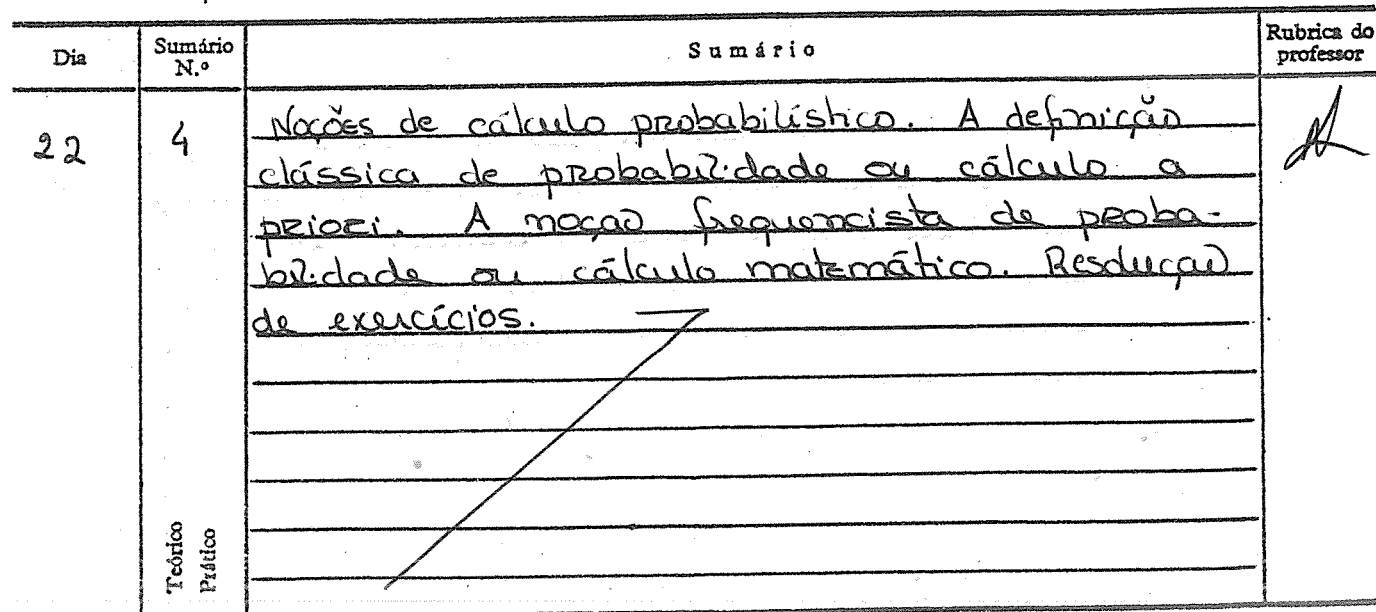 Dia Sumário N.º Sumário Rubrica do professor
22 4 Noções de cálculo probabilístico. A definição
clássica de probabilidade ou cálculo a
priori. A noção frequencista de proba-
bilidade ou cálculo matemático. Resolução
de exercícios.
Teórico
Prático